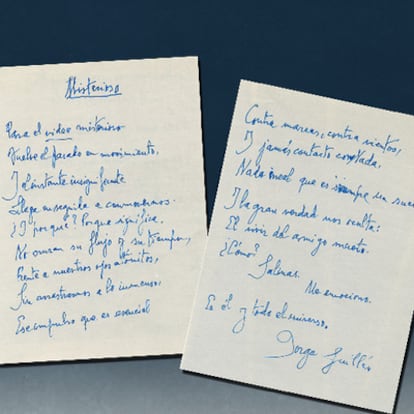 Misterioso
Para el vidor misterioso
Vuelve el pasado en movimiento,
Y el instante insignificante
Llega en seguida a conmovernos.
¿Y por qué? Porque significa.
No cursan su flujo y su tiempo,
Frente a nuestros ojos atónitos,
Sin arrastrarnos a lo inmenso,
Ese impulso que es esencial
Contra mareas, contra vientos,
Y jamás contacto
Nada irreal que es siempre un sueño
Y la gran verdad nos resulta:
El vivir del amigo muerto.
¿Cómo?
Salinas.
Me emociono.
Es él y todo el universo.
Jorge Guillén